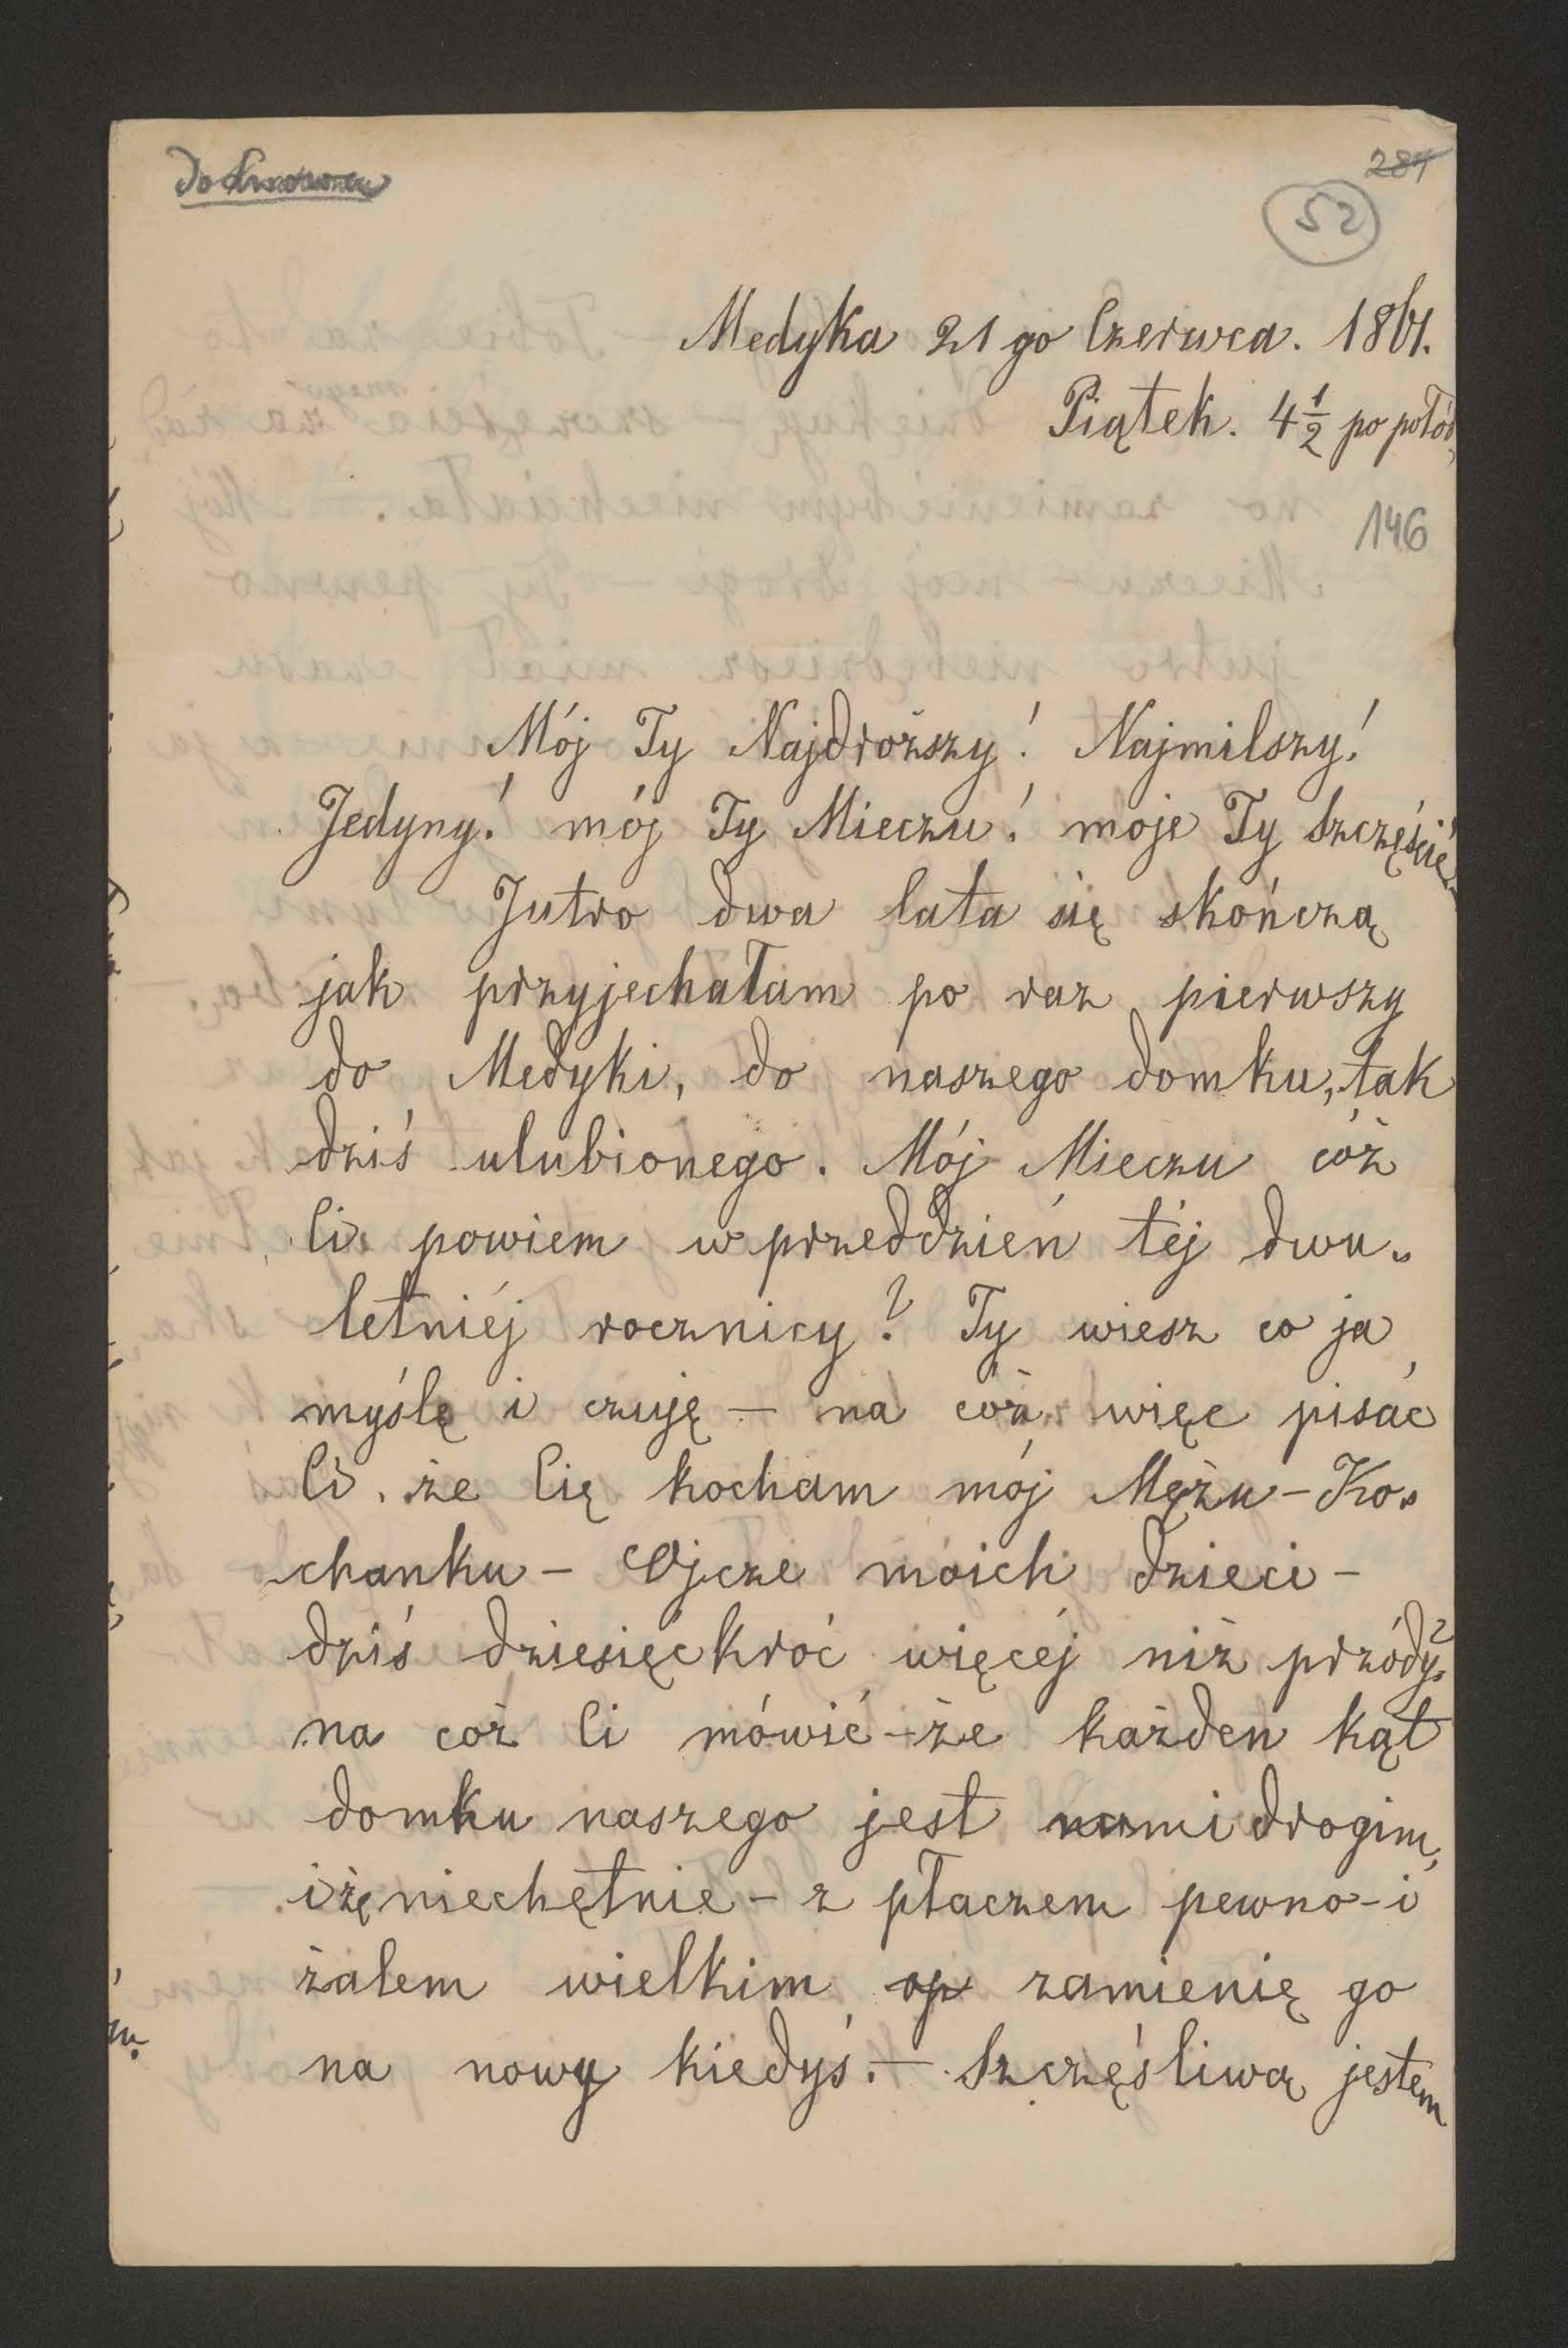 do Lwowa
284
52
Medyka 21 go Czerwca. 1861.
Piątek. 4 1/2 po połód.
146
Mój Ty Najdroższy! Najmilszy!
Jedyny! mój Ty Mieczu! moje Ty Szczęście
Jutro dwa lata się skończą
jak przyjechałam po raz pierwszy
do Medyki, do naszego domku, tak
dziś ulubionego. Mój Mieczu cóż
Ci powiem w przeddzień téj dwu„
letniéj rocznicy? Ty wiesz co ja
myślę i czuję – na cóż więc pisać
Ci, że Cię kocham mój Mężu – Ko„
chanku – Ojcze moich dzieci –
dziś dziesięckroć więcéj niż przódy?
na coż Ci mówić – że każden kąt
domku naszego jest mi drogim,
i żę niechętnie – z płaczem pewno – i
żalem wielkim op zamienię go
na nowy kiedyś. – Szczęśliwą jestem